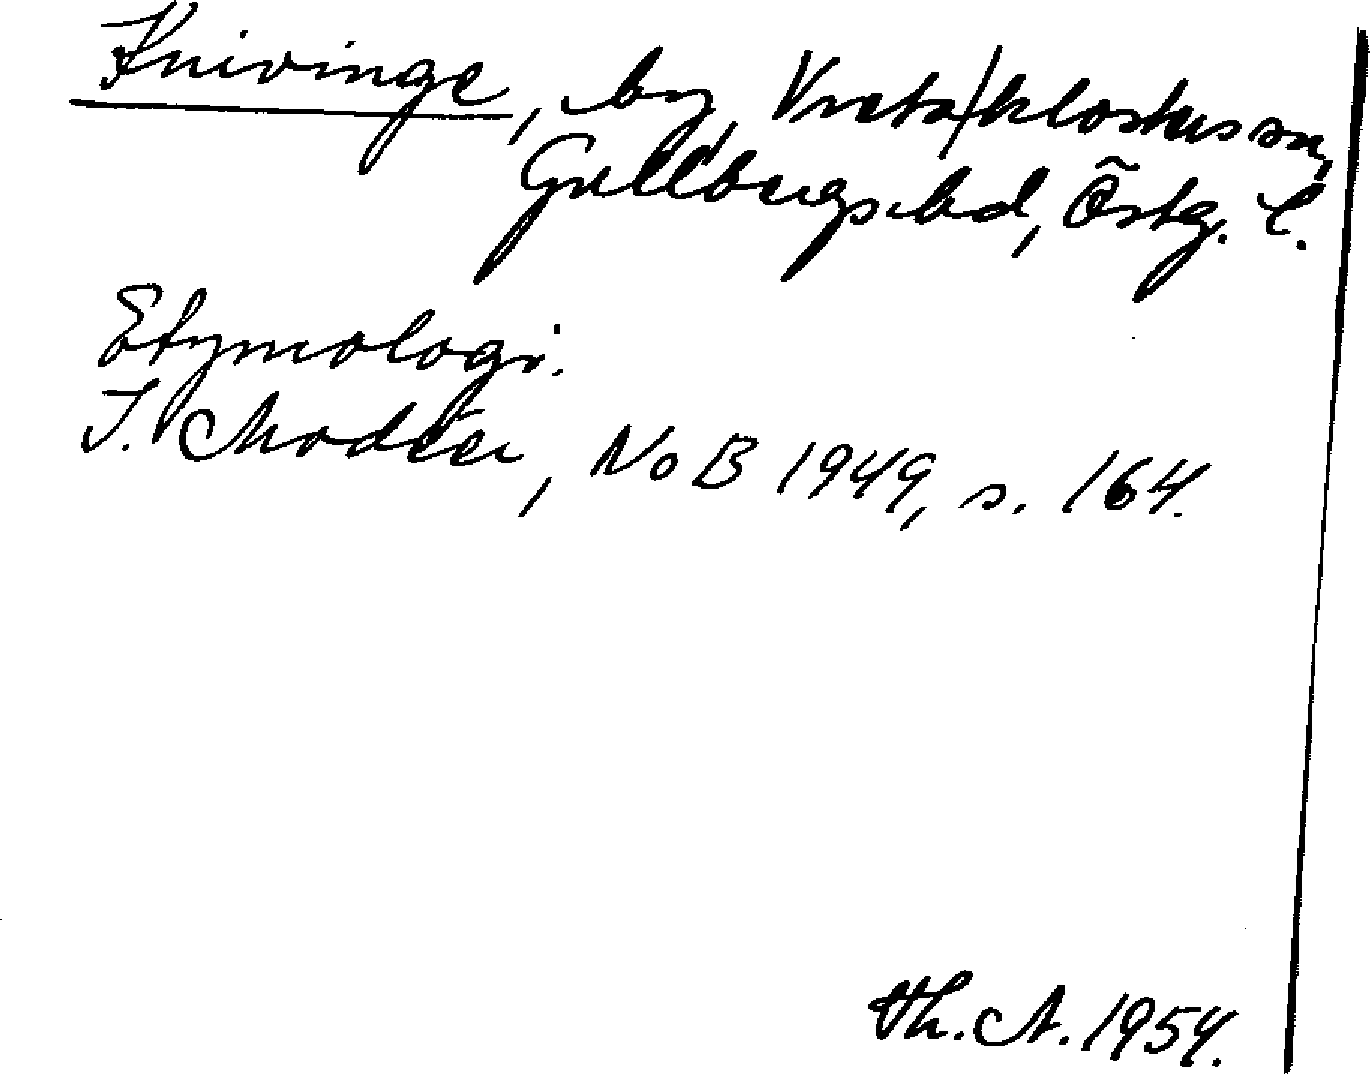 Knivinge, by, Vreta/klosters sn,
Gullbergs hd, Östg. l.
Etymologi.
I. Modéer, NoB 1949, s. 164.
th. A. 1954.